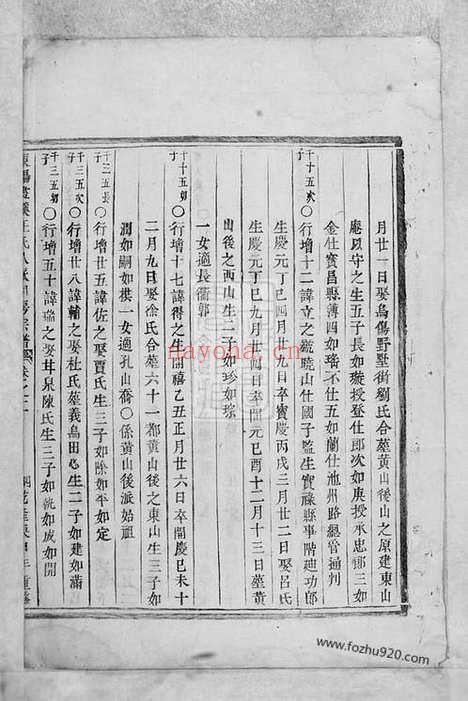 月廿一日娶烏傷野墅街劉氏合墓黃山後山之原建東山
庵以守之生五子長如璇授登仕郎次如庚授承忠郎三如
金仕寶昌縣薄四如瑨不仕五如蘭仕池州路總管通判
十五次
子
〇行增十二諱立之號曉山仕國子監生實祿縣事階廸功郎
生慶元丁巳四月九日卒寶慶丙戌三月廿二日娶呂氏
生慶元丁巳九月廿四日卒開元己酉十二月十三日墓黃
山後之西山生二子如珍如琮
一女適長衢郭
十五卯
子
〇行增十七諱得之生開禧乙丑正月廿六日卒開慶已未十
二月九日娶徐氏合墓六十一都黃山後之東山生三子如
潤如嗣如樸一女適孔山喬〇係黃山後派始祖
十二五長
子
〇行增廿五諱佐之娶賈氏生三子如除如平如定
十三五次
子
〇行增廿八諱輔之娶杜氏墓義烏田心生二子如建如滿
十三五卯
子
〇行增五十諱論之娶井泉陳氏生三子如統如成如開
nayona.cn
www.fozhu920.com